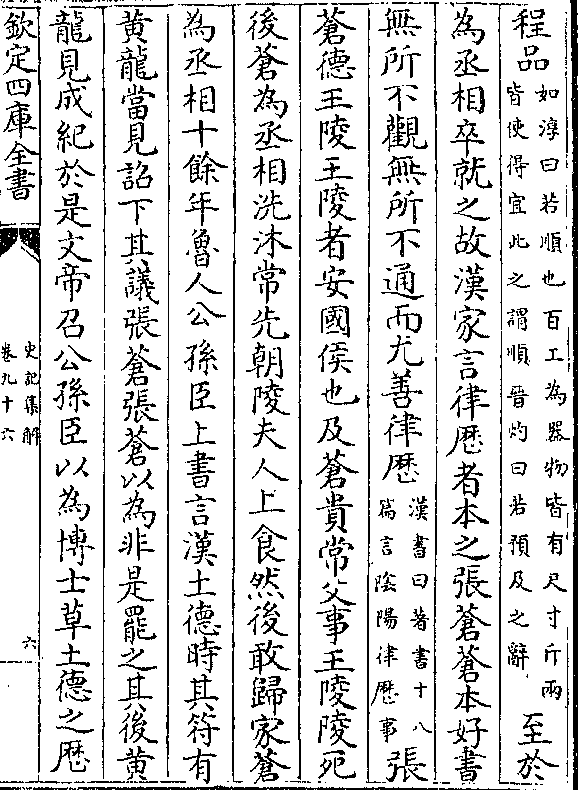 程品如淳曰若順也百工為器物皆有尺寸斤兩皆使得宜此之謂順晉灼曰若預及之辭至於
為丞相卒就之故漢家言律厯者本之張蒼蒼本好書
無所不觀無所不通而尤善律厯漢書曰著書十八篇言陰陽律厯事張
蒼德王陵王陵者安國侯也及蒼貴常父事王陵陵死
後蒼為丞相洗沐常先朝陵夫人上食然後敢歸家蒼
為丞相十餘年魯人公孫臣上書言漢土德時其符有
黄龍當見詔下其議張蒼張蒼以為非是罷之其後黄
龍見成紀於是文帝召公孫臣以為博士草土德之厯
欽定四庫全書
史記集解
卷九十六
六